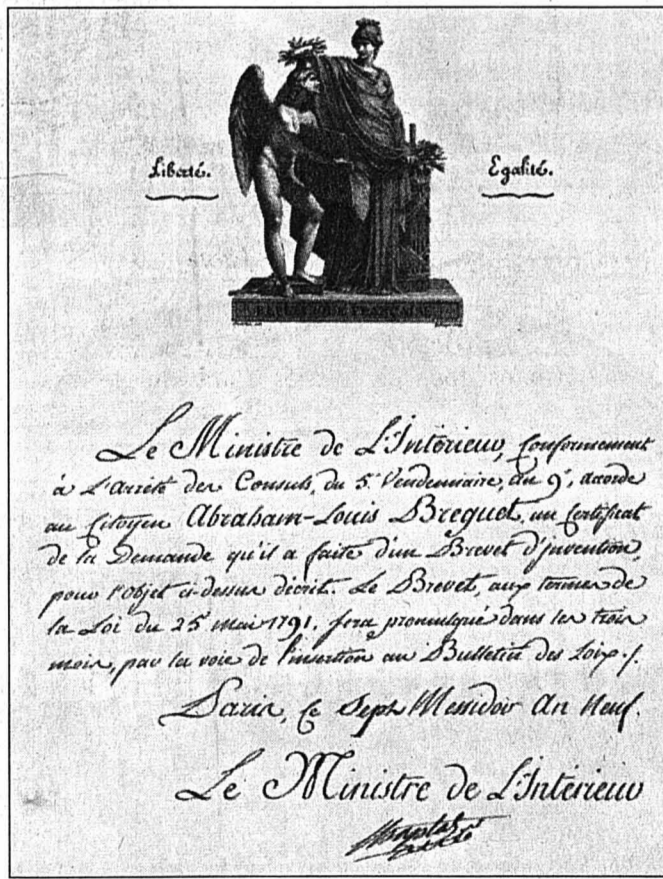 Liberté. Egalité.
REPUBLIQUE FRANÇAISE
Le Ministre de L'Intérieur, conformement
à L'Arrêté des Consuls, du 5.e Vendemiaire, an 9.e, accorde
au Citoyen Abraham-Louis Breguet, un Certificat
de la Demande qu'il a faite d'un Brevet d'invention,
pour l'objet ci-dessus décrit. Le Brevet, aux termes de
la Loi du 25 mai 1791. sera promulgué dans les trois
mois, par la voie de l'insertion au Bulletin des Loix./.
Paris, Ce Sept Messidor An Neuf.
Le Ministre de L'Intérieur
Chaptal